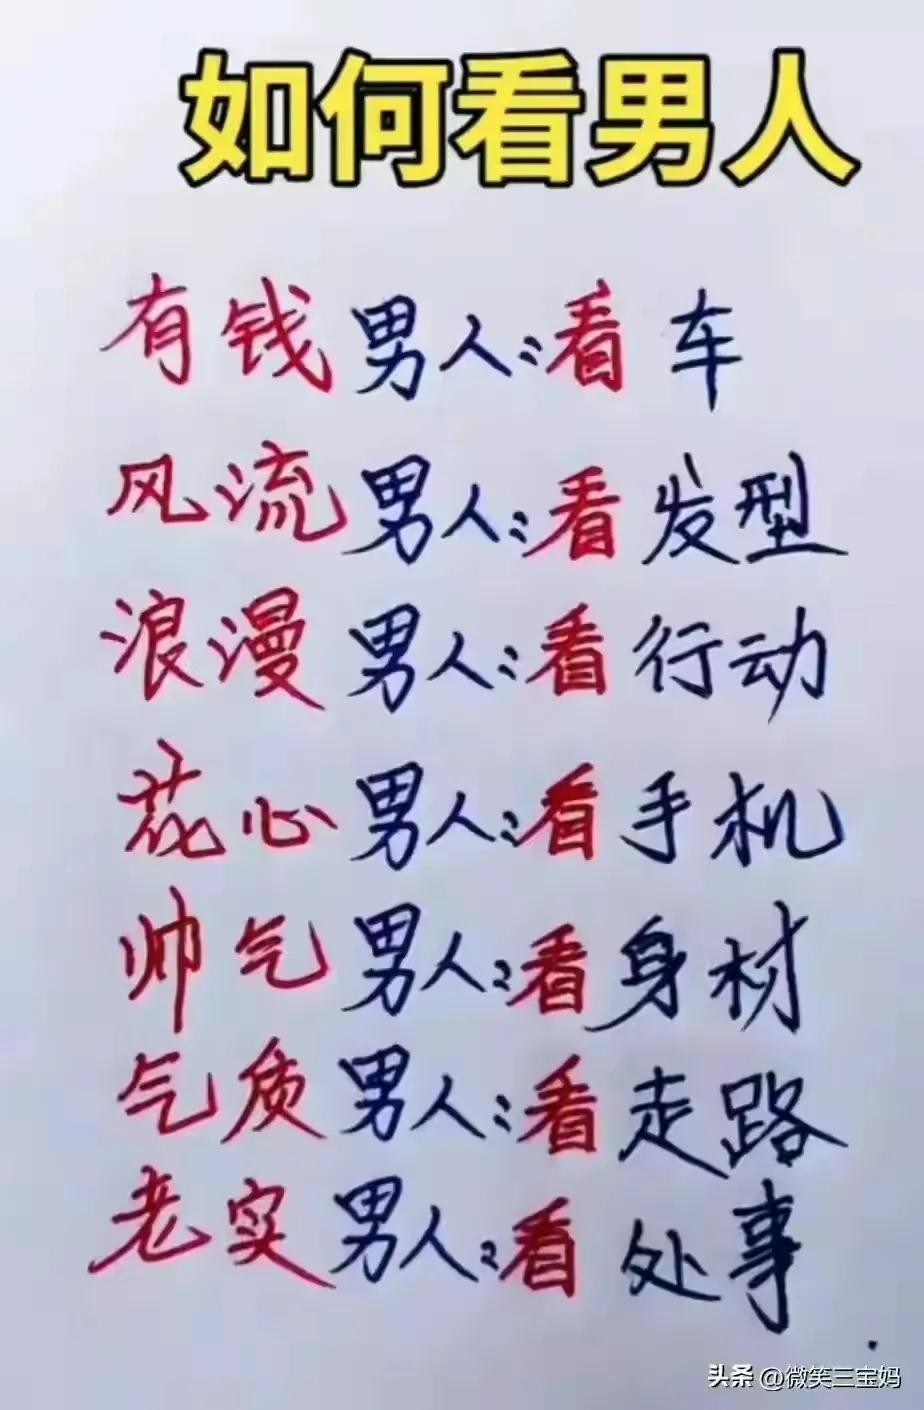 如何看男人
有钱男人:看车
风流男人:看发型
浪漫男人:看行动
花心男人:看手机
帅气男人:看身材
气质男人:看走路
老实男人:看处事.
头条 @微笑三宝妈